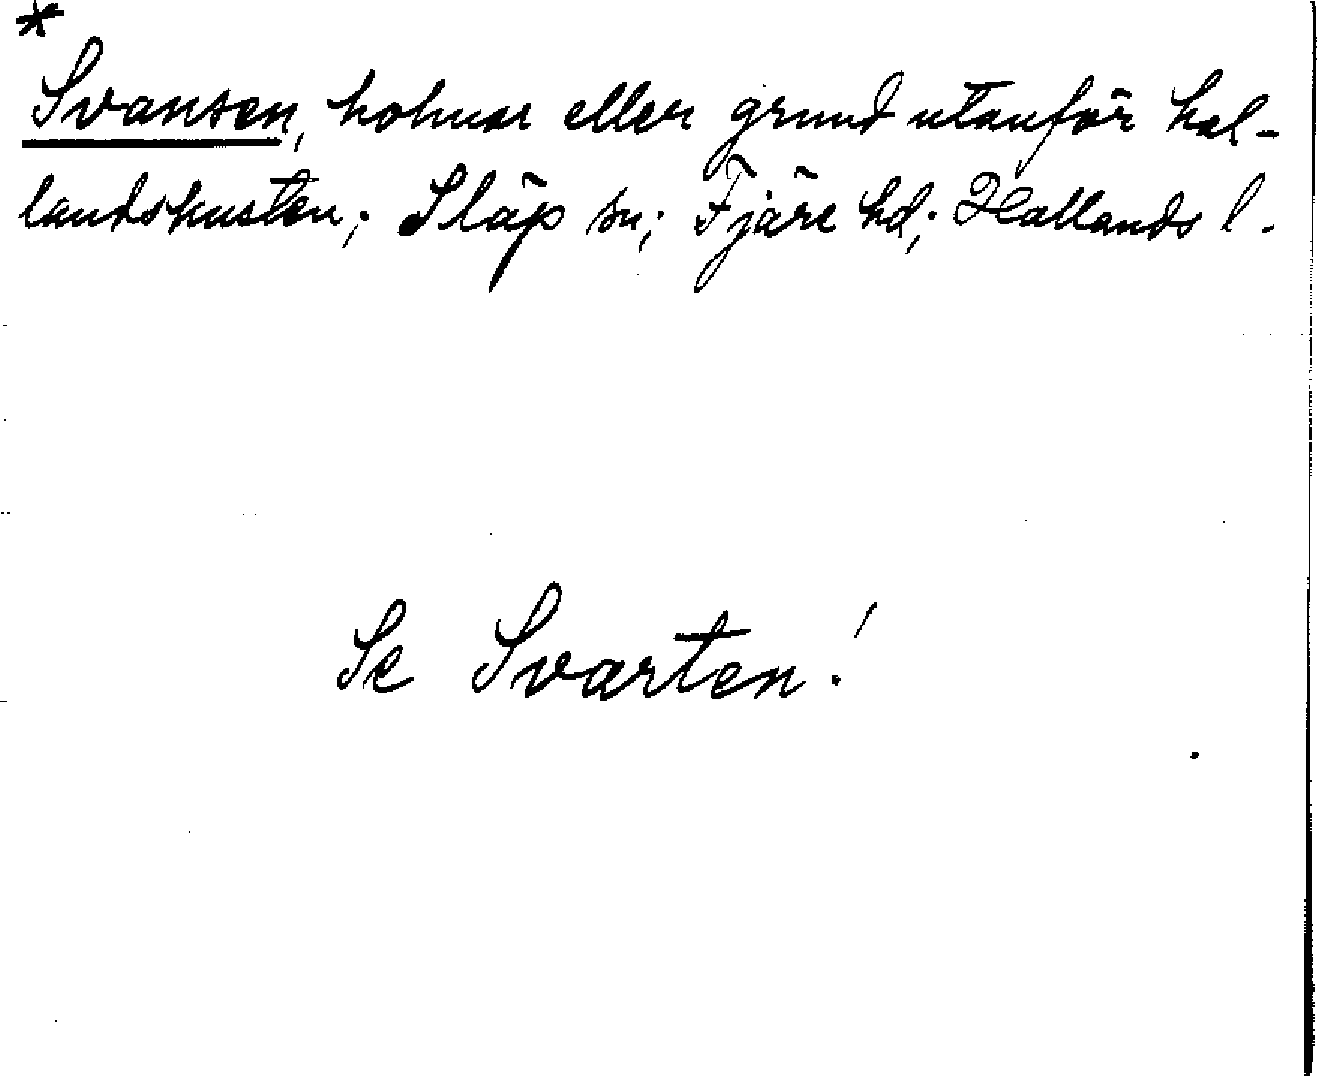 *
Svansen, holmar eller grund utanför hal-
landskusten; Släp sn; Fjäre hd; Hallands l.
Se Svarten!